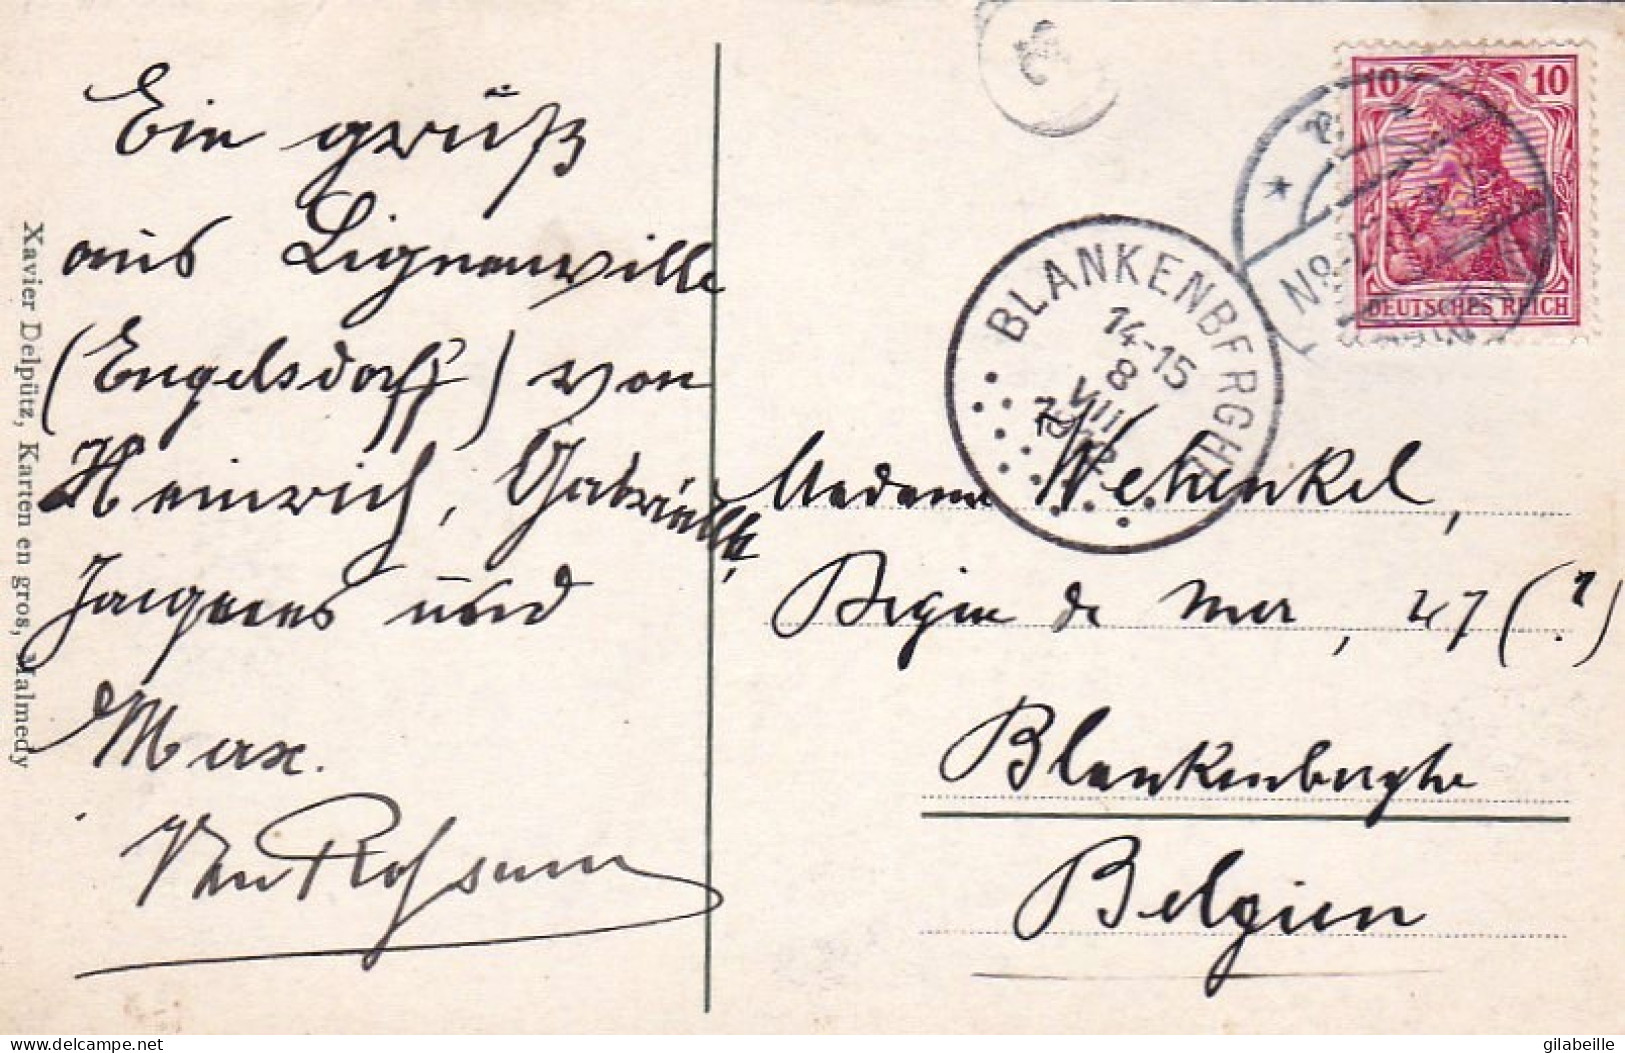 Ein gruß
aus Lignenville
(Engelsdorf) von
Heinrich, Gabrielle,
Jacques und
Max.
Xavier Delpütz, Karten en gros, Malmedy
10 10
DEUTSCHES REICH
BLANKENBERGHE
14-15
8
VIII
Madame Wehenkel,
Digue de mer, 27 (?)
Blankenberghe
Belgien
delcampe.net
gilabeille